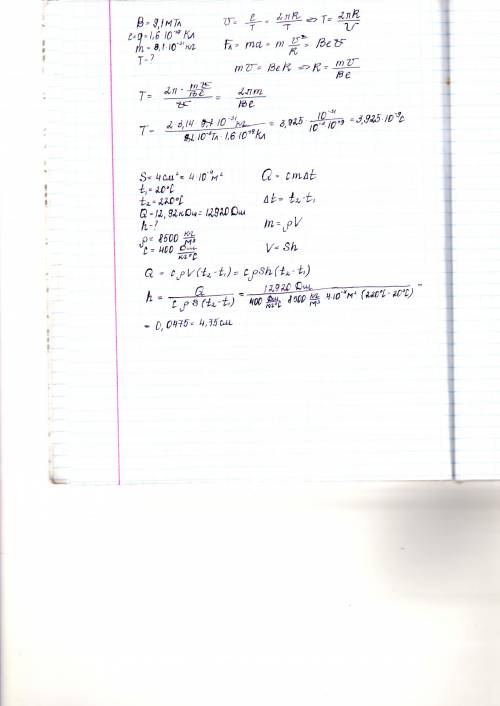 B = 9,1 мТл
e=q=1,6·10⁻¹⁹ Кл
m = 9,1·10⁻³¹ кг
T-?
υ = ℓ/T = 2πR/T ⇒ T = 2πR/υ
Fл = ma = m υ²/R = Beυ
mυ = BeR ⇒ R = mυ/Be
T = (2π · mυ/Be)/υ = 2πm/Be
T = (2·3,14·9,1·10⁻³¹ кг)/(9,1·10⁻³ Тл·1,6·10⁻¹⁹ Кл) = 3,925·10⁻³¹/(10⁻³·10⁻¹⁹) = 3,925·10⁻⁹ c
S = 4 см² = 4·10⁻⁴ м²
t₁ = 20°C
t₂ = 220°C
Q = 12,92 кДж = 12920 Дж
h-?
ρ = 8500 кг/м³
c = 400 Дж/кг°C
Q = cmΔt
Δt = t₂-t₁
m = ρV
V = Sh
Q = cρV(t₂-t₁) = cρSh(t₂-t₁)
h = Q/(cρS(t₂-t₁)) = 12920 Дж/(400 Дж/кг°C 8500 кг/м³ 4·10⁻⁴ м² (220°C-20°C)) =
= 0,0475 = 4,75 см